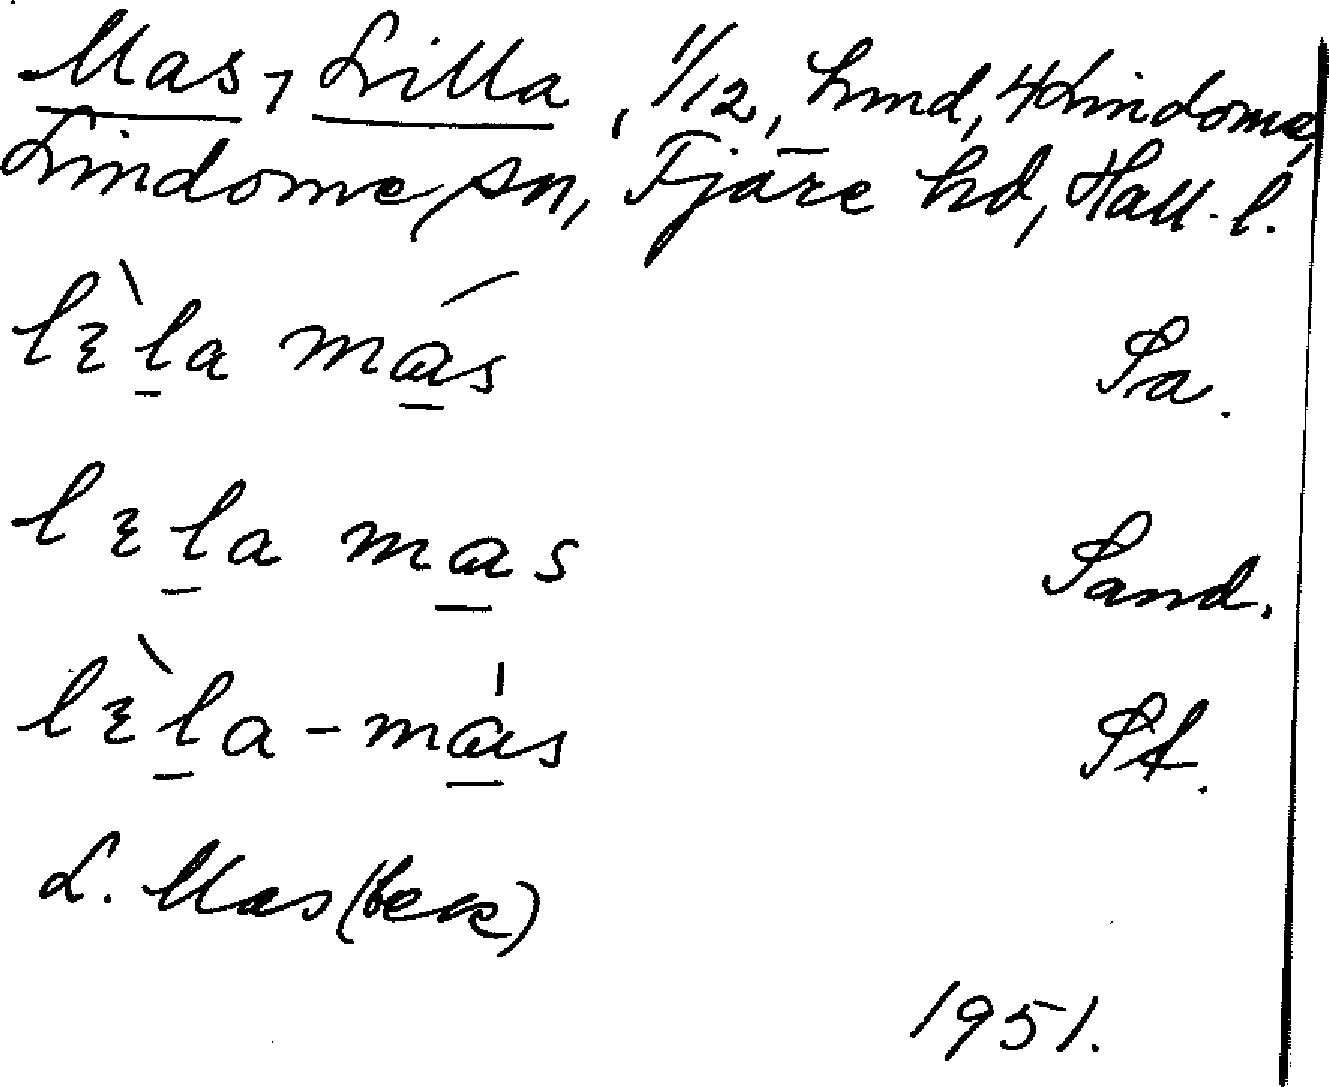 Mas, Lilla, 1/12, hmd, 4 Lindome,
Lindome sn, Fjäre hd, Hall. l.
lɛ̀l̲a má̲s Sa.
lɛl̲a ma̲s Sand.
lɛ̀l̲a-má̲s Sf.
L. Mas (bek)
1951.